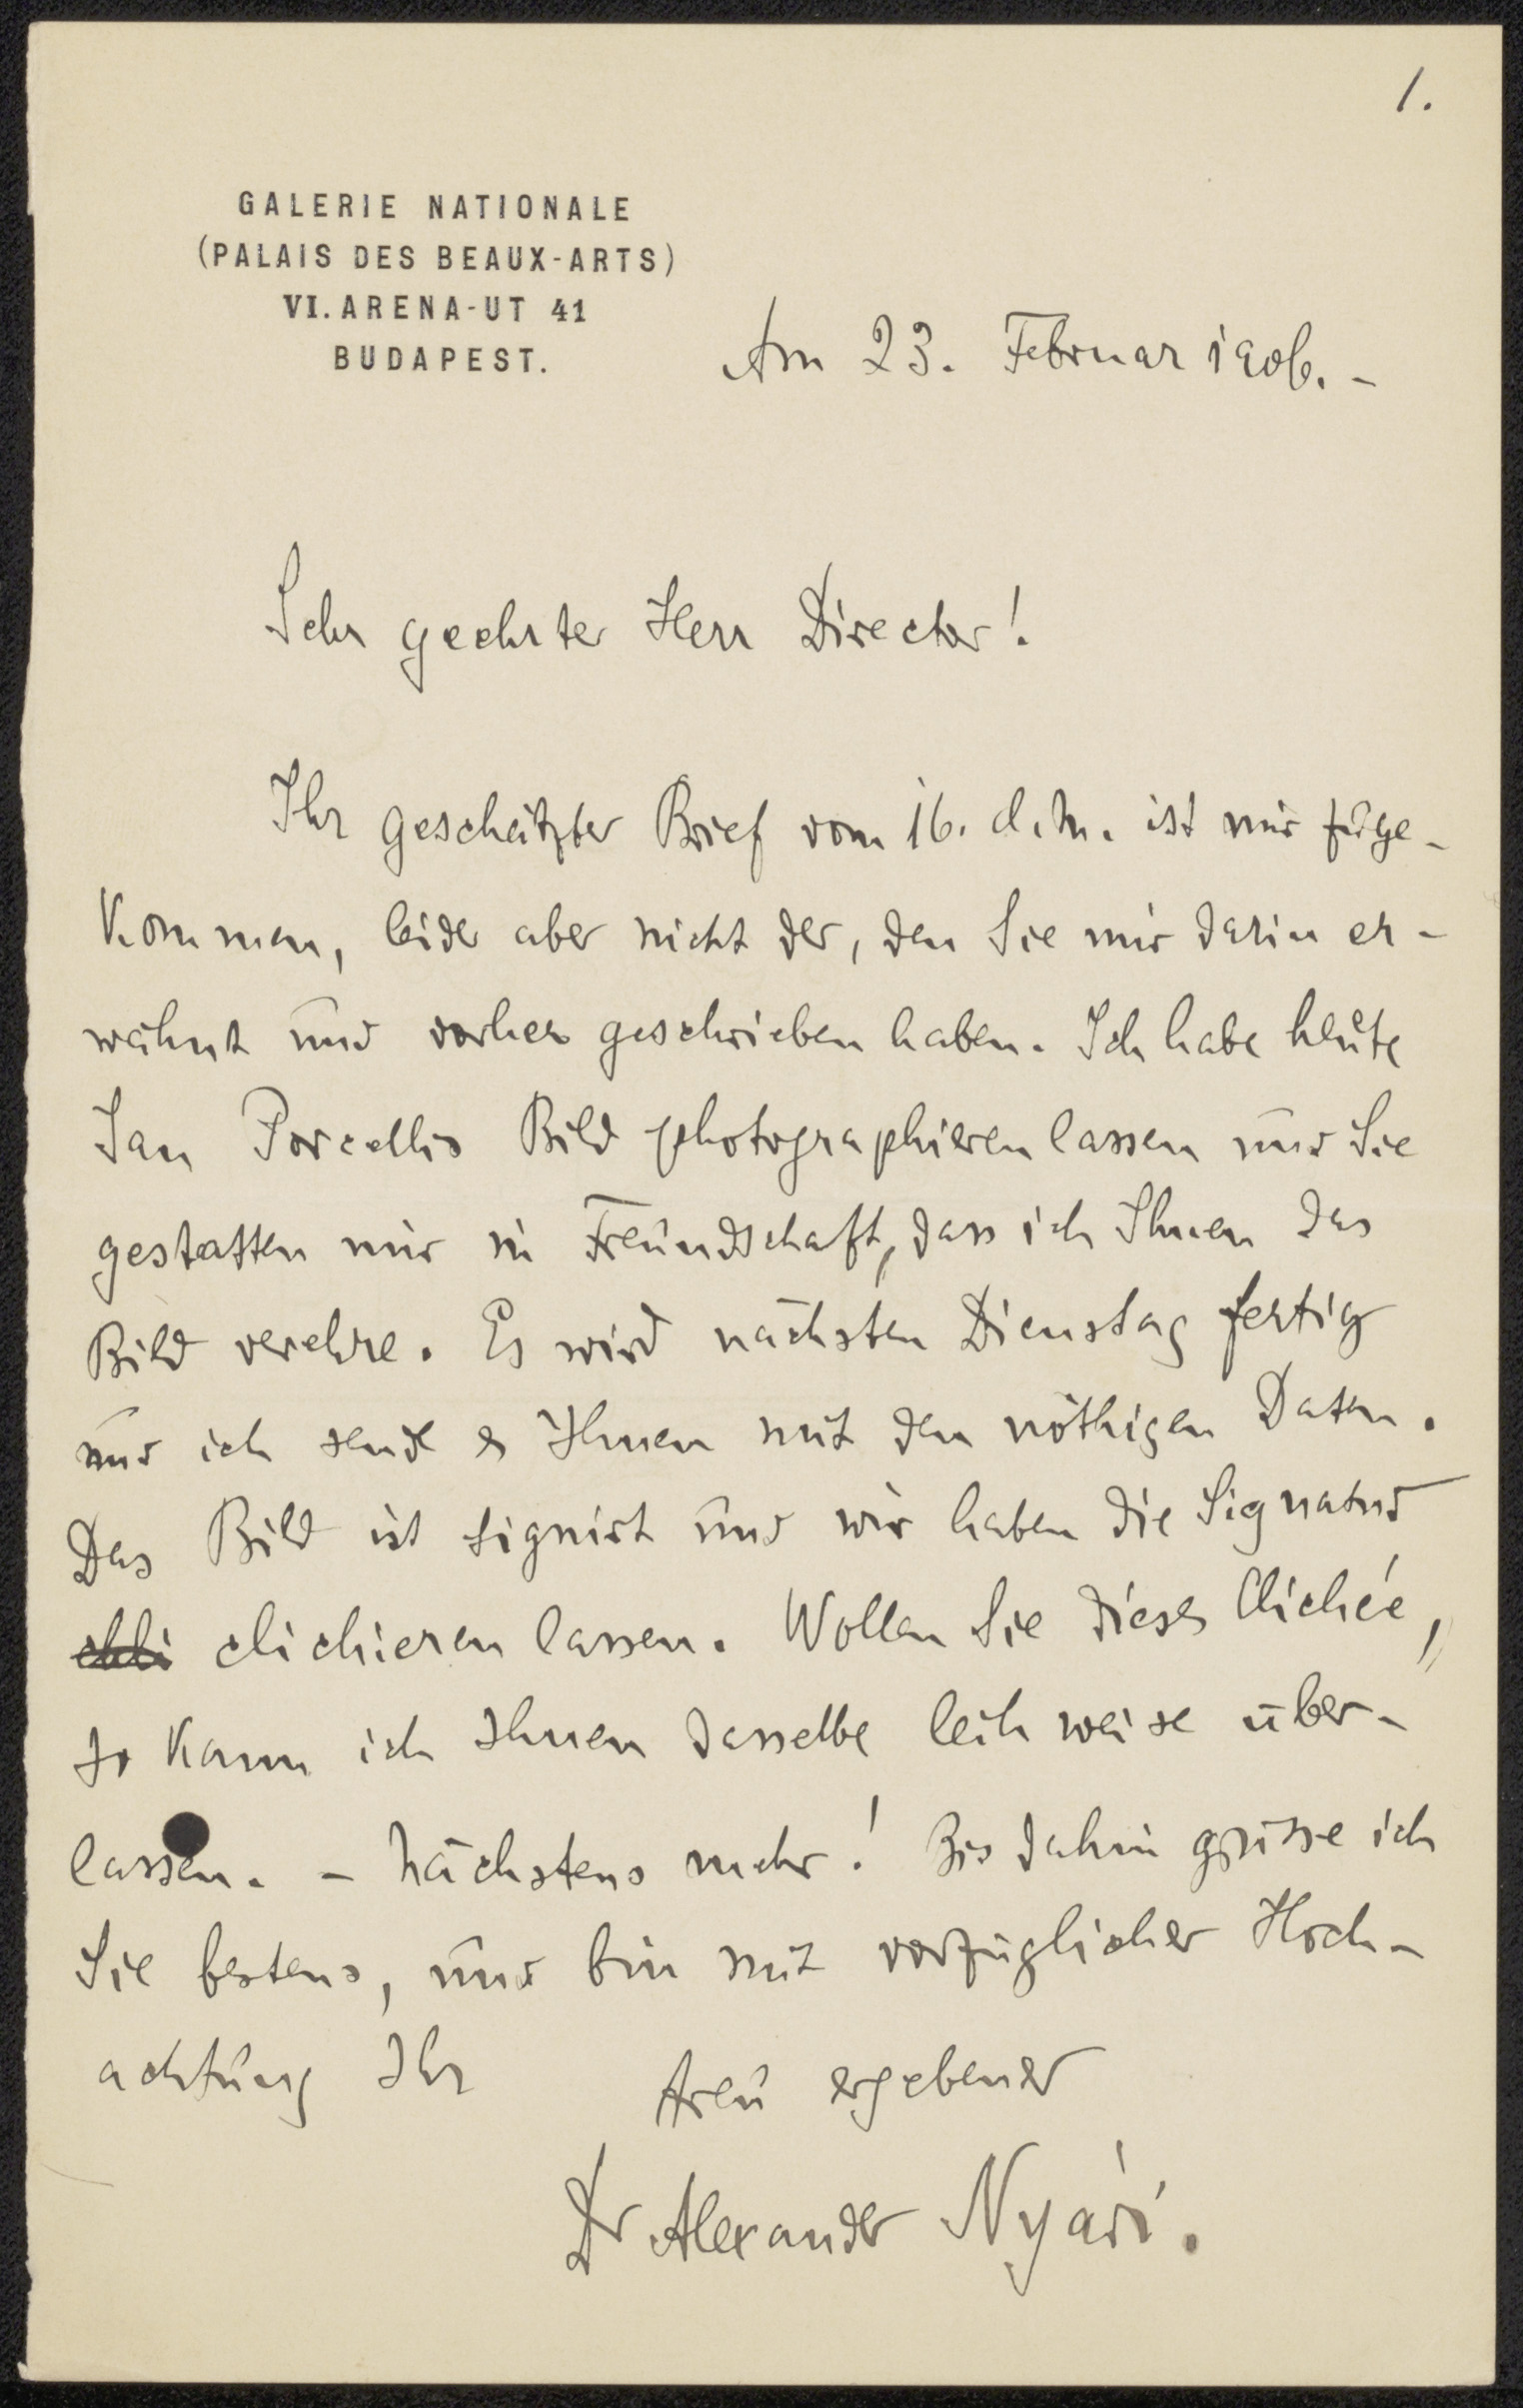 1.
GALERIE NATIONALE
(PALAIS DES BEAUX-ARTS)
VI. ARENA-UT 41
BUDAPEST.
Am 23. Februar 1906. -
Sehr geehrter Herr Director!
Ihr geschätzter Brief vom 16. d. M. ist mir zuge-
kommen, leider aber nicht der, den Sie mir darin er-
wähnt und vorher geschrieben haben. Ich habe heute
Jan Porcellis Bild photographieren lassen und Sie
gestatten mir in Freundschaft, dass ich Ihnen das
Bild verehre. Es wird nächsten Dienstag fertig
und ich sende es Ihnen mit den nöthigen Daten.
Das Bild ist signirt und wir haben die Signatur
clichieren lassen. Wollen Sie dieses Clichée,
so kann ich Ihnen dasselbe leihweise über-
lassen. - Nächstens mehr! Bis dahin grüsse ich
Sie bestens, und bin mit vorzüglicher Hoch-
achtung Ihr
treu ergebener
Dr Alexander Nyári.